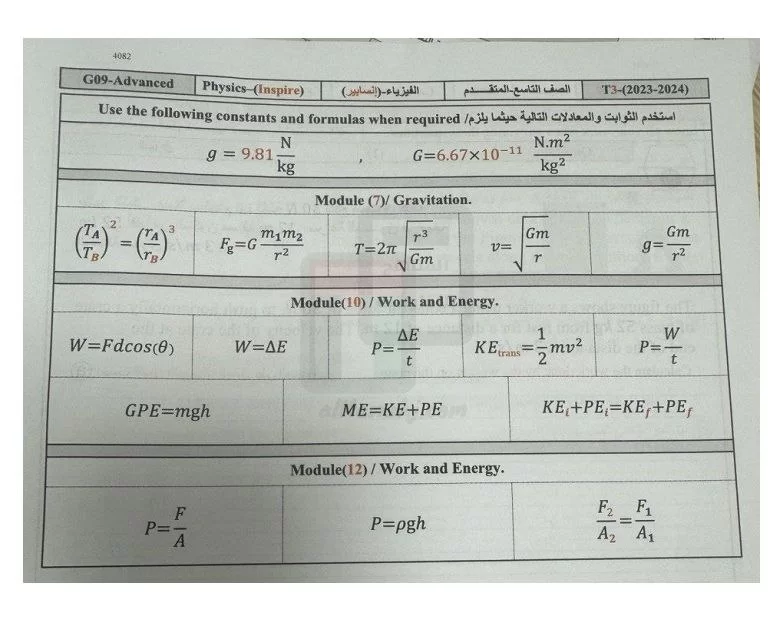 4082
G09-Advanced Physics-(Inspire) الفيزياء-(إنسابير) الصف التاسع-المتقـــدم T3-(2023-2024)
Use the following constants and formulas when required /استخدم الثوابت والمعادلات التالية حيثما يلزم
g = 9.81 N/kg , G=6.67×10⁻¹¹ N.m²/kg²
Module (7)/ Gravitation.
(T_A/T_B)² = (r_A/r_B)³ F_g=G m₁m₂/r² T=2π√(r³/Gm) v=√(Gm/r) g=Gm/r²
Module(10) / Work and Energy.
W=Fdcos(θ) W=ΔE P=ΔE/t KE_trans=1/2 mv² P=W/t
GPE=mgh ME=KE+PE KE_i+PE_i=KE_f+PE_f
Module(12) / Work and Energy.
P=F/A P=ρgh F₂/A₂=F₁/A₁